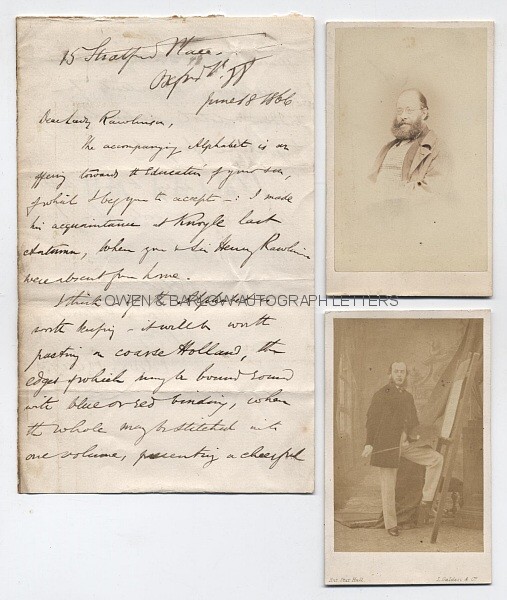 15 Stratford Place.
Oxford St. W
June 18 1866
Dear Lady Rawlinson,
The accompanying Alphabet is an
offering towards the Education of your son,
of which I beg you to accept _: I made
his acquaintance at Knoyle last
Autumn, when you & Sir Henry Rawlinson
were absent from home.
I think if the Alphabet
worth keeping – it will be worth
pasting on coarse Holland, the
edges of which may be bound round
with blue or red binding, when
the whole may be stitched into
one volume, presenting a cheerful
© OWEN & BARLOW AUTOGRAPH LETTERS